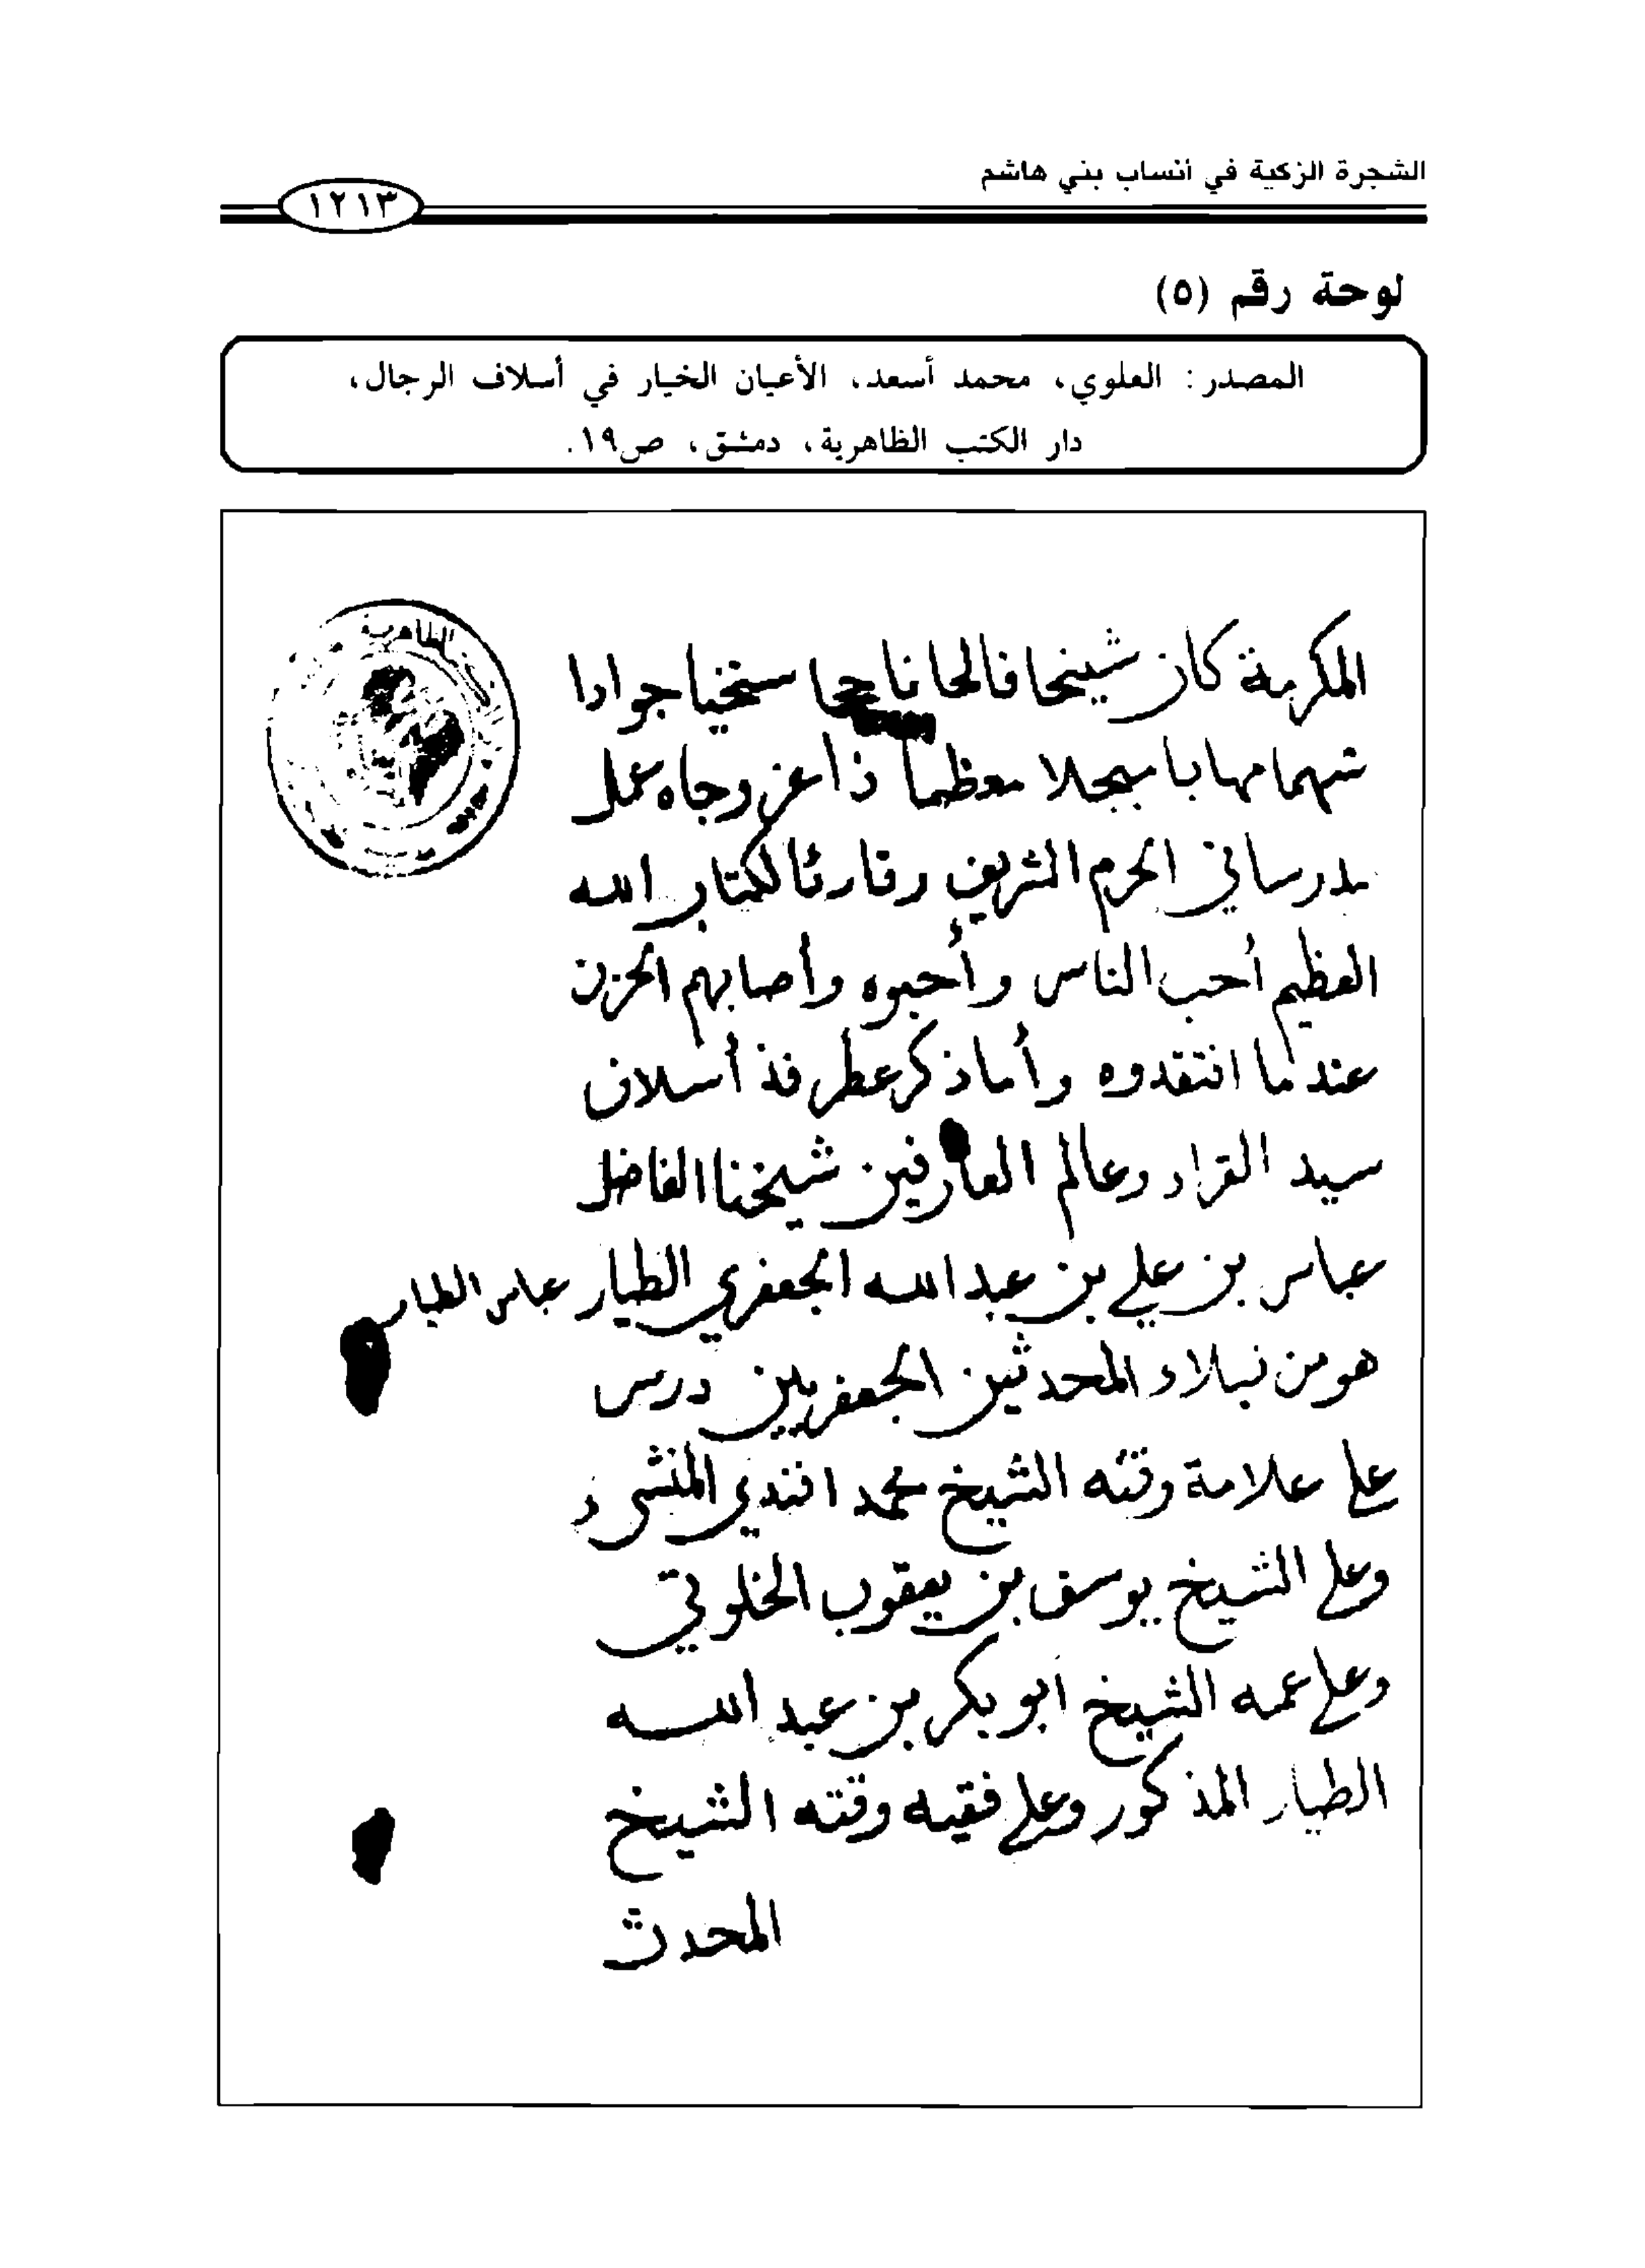 الشجرة الزكية في أنساب بني هاشم
١٢١٣
لوحة رقم (٥)
المصدر: العلوي، محمد أسعد، الأعيان الخيار في أسلاف الرجال،
دار الكتب الظاهرية، دمشق، ص١٩.
الظاهرية
المكرمة كان شيخا فالحا ناجحا سخيا جوادا
شهما مهابا مبجلا معظما ذا عز وجاه عمل
مدرسا في الحرم الشريف وقارئا لكتاب الله
العظيم أحب الناس وأحبوه وأصابهم الحزن
عندما افتقدوه وأما ذكر عطر فذ أسلاف
سيد القراء وعالم العارفين شيخنا الفاضل
عباس بن علي بن عبد الله الجعفري الطيار عباس الطيار
هو من نبلاء المحدثين الجعفريين درس
على علامة وقته الشيخ محمد افندي المنشي
وعلى الشيخ يوسف بن يعقوب الخلوتي
وعلى عمه الشيخ ابو بكر بن عبد الله
الطيار المذكور وعلى فقيه وقته الشيخ
المحدث